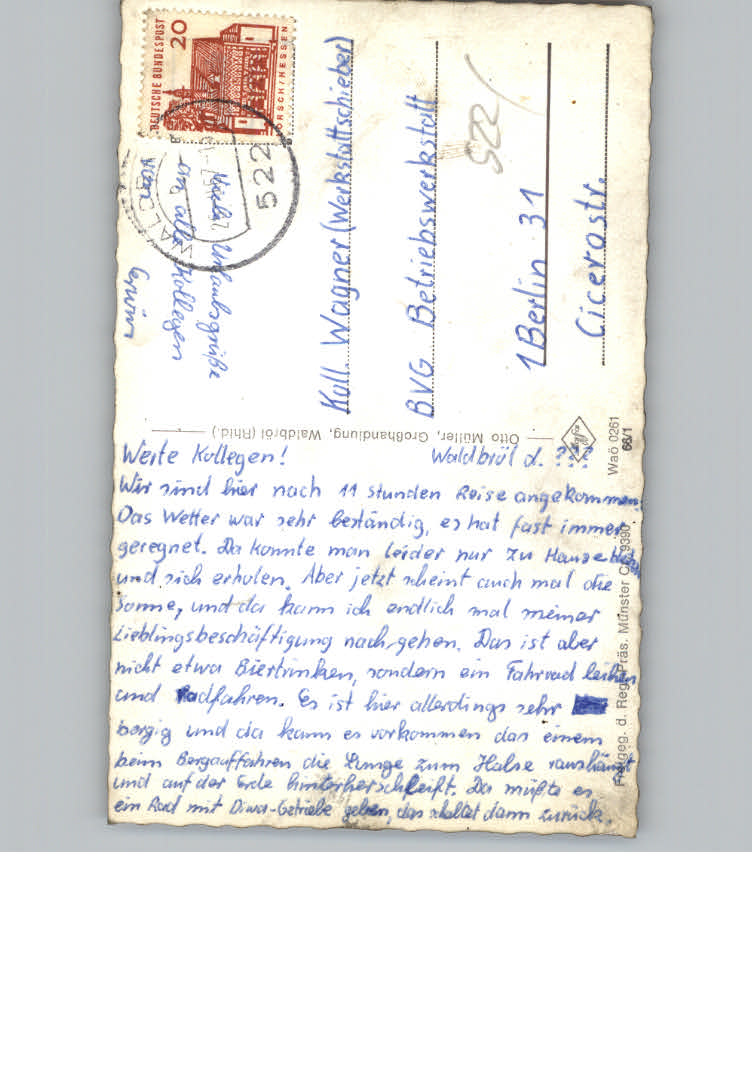 Werte Kollegen!
Waldbröl d. ???
Wir sind hier nach 11 stunden Reise angekommen.
Das Wetter war sehr beständig, es hat fast immer
geregnet. Da konnte man leider nur zu Hause
und sich erholen. Aber jetzt scheint auch mal die
Sonne, und da kann ich endlich mal meiner
Lieblingsbeschäftigung nach gehen. Das ist aber
nicht etwa Biertrinken, sondern ein Fahrrad leihen
und Radfahren. Es ist hier allerdings sehr
bergig und da kann es vorkommen das einem
beim Bergauffahren die Lunge zum Halse raushängt
und auf der Erde hinterherschleift. Da müßte es
ein Rad mit Diwa-Getriebe geben, das schaltet dann zurück.
Viele Urlaubsgrüße
an alle Kollegen
von
Erwin
Koll. Wagner (Werkstattschieber)
BVG Betriebswerkstatt
1 Berlin 31
Cicerostr.
522
DEUTSCHE BUNDESPOST
20
LORSCH/HESSEN
522
WALDBRÖL
Otto Müller, Großhandlung, Waldbröl (Rhld.)
Agfa
Waö 0261
66/1
Freigeg. d. Reg. Präs. Münster CP 9390